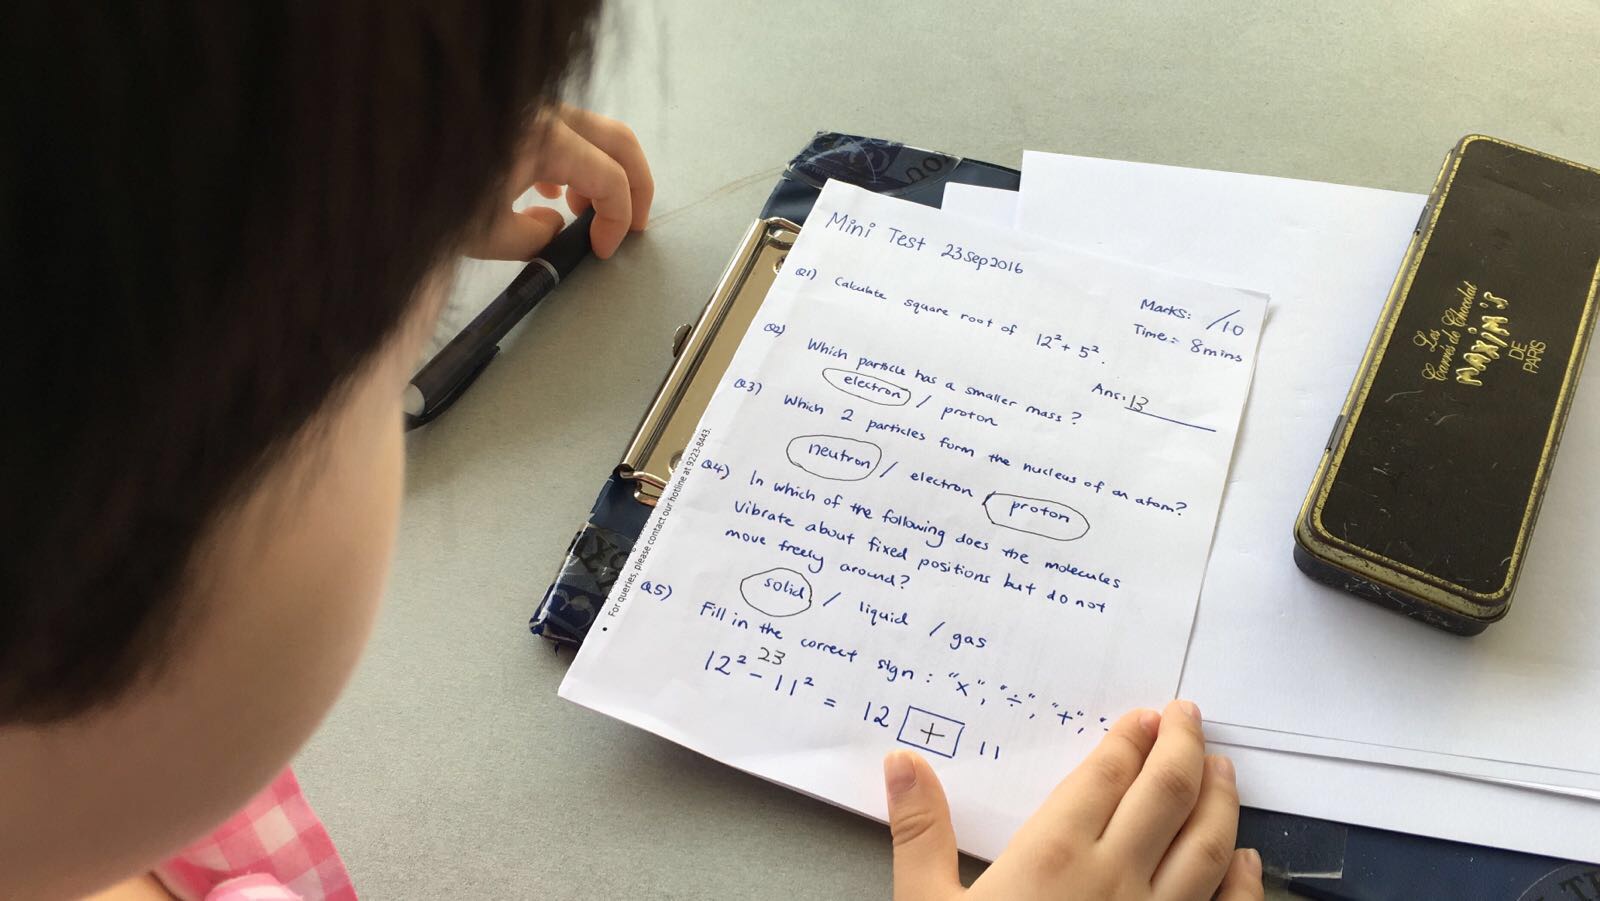 Mini Test 23 Sep 2016
Marks: /10
Time: 8 mins
Q1) Calculate square root of 12² + 5².
Ans: 13
Q2) Which particle has a smaller mass?
electron / proton
Q3) Which 2 particles form the nucleus of an atom?
neutron / electron / proton
Q4) In which of the following does the molecules
vibrate about fixed positions but do not
move freely around?
solid / liquid / gas
Q5) Fill in the correct sign: "x", "÷", "+",
23
12² - 11² = 12 + 11
• For queries, please contact our hotline at 9223-8443.
Les
Carrés de Chocolat
MAXIM'S
DE
PARIS